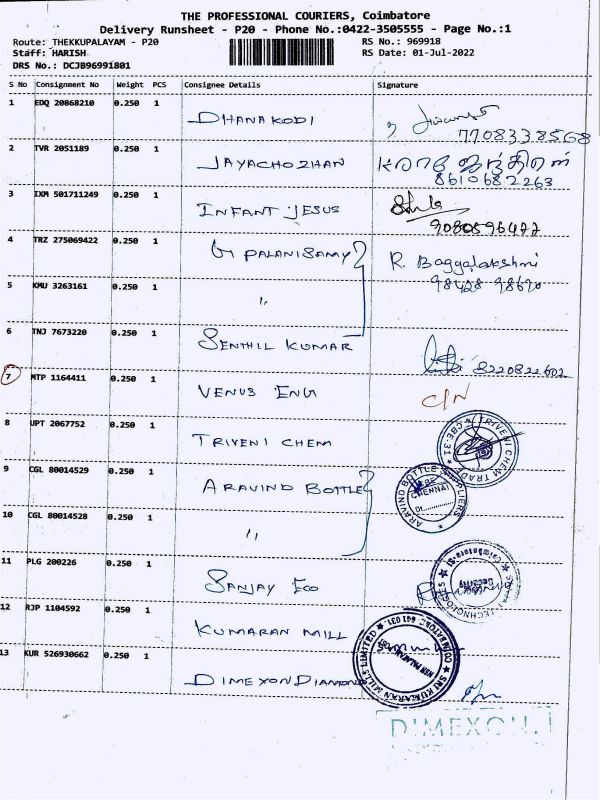 THE PROFESSIONAL COURIERS, Coimbatore
Delivery Runsheet - P20 - Phone No.:0422-3505555 - Page No.:1
Route: THEKKUPALAYAM - P20 RS No.: 969918
Staff: HARISH RS Date: 01-Jul-2022
DRS No.: DCJB96991801
S No Consignment No Weight PCS Consignee Details Signature
1 EDQ 20868210 0.250 1 DHANAKODI
7708338568
2 TVR 2051189 0.250 1 JAYACHOZHAN
8610682263
3 IXM 501711249 0.250 1 INFANT JESUS
9080596477
4 TRZ 275069422 0.250 1 G PALANISAMY R. Baggyalakshmi
98428 98670
5 KMU 3263161 0.250 1 "
6 TNJ 7673220 0.250 1 SENTHIL KUMAR
8220822602
7 MTP 1164411 0.250 1 VENUS ENG C/N
8 UPT 2067752 0.250 1 TRIVENI CHEM
TRIVENI CHEM TRAD CBE-31
9 CGL 80014529 0.250 1 ARAVIND BOTTLE
ARAVIND BOTTLE SUPPLIERS CHENNAI
10 CGL 80014528 0.250 1 "
11 PLG 200226 0.250 1 SANJAY ECO
TECHNOLOGIES Coimbatore Security
12 RJP 1104592 0.250 1 KUMARAN MILL
SRI KUMARAN MILLS LIMITED COIMBATORE 641 031
13 KUR 526930662 0.250 1 DIMEXON DIAMOND
DIMEXON